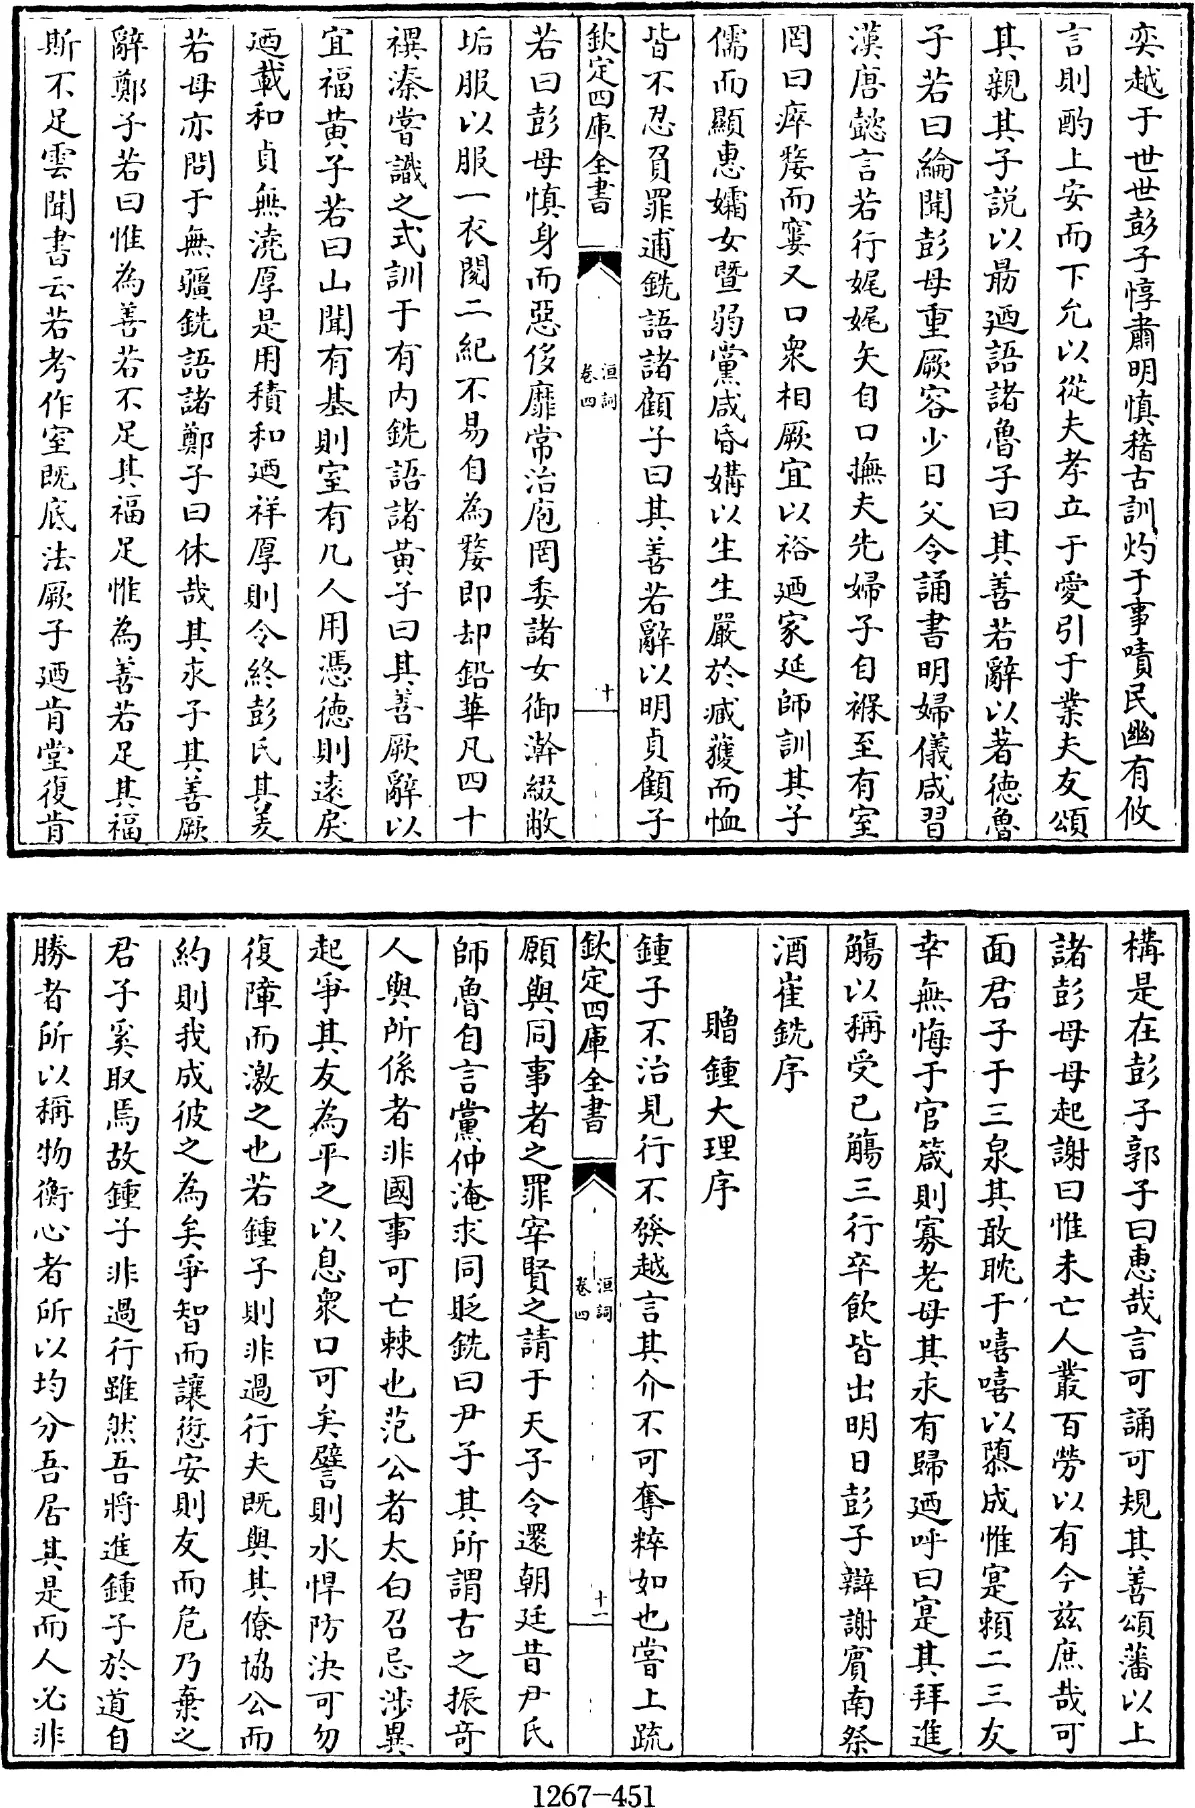 奕越于世世彭子惇肅明慎稽古訓灼于事嘖民幽有攸
言則酌上安而下允以從夫孝立于愛引于業夫友頌
其親其子説以勗廼語諸魯子曰其善若辭以著徳魯
子若曰綸聞彭母重厥容少日父令誦書明婦儀咸習
漢唐懿言若行娓娓矢自口撫夫先婦子自褓至有室
罔曰瘁嫠而窶又口衆相厥宜以裕廼家延師訓其子
儒而顯惠孀女暨弱黨咸昏媾以生生嚴於臧獲而恤
皆不忍負罪逋銑語諸顧子曰其善若辭以明貞顧子
欽定四庫全書
洹詞
卷四
十
若曰彭母慎身而惡侈靡常治庖罔委諸女御澣綴敝
垢服以服一衣閱二紀不易自為嫠即却鉛華凡四十
禩溱嘗識之式訓于有内銑語諸黄子曰其善厥辭以
宜福黄子若曰山聞有基則室有几人用憑徳則逺戾
廼載和貞無澆厚是用積和廼祥厚則令終彭氏其羙
若母亦問于無疆銑語諸鄭子曰休哉其求子其善厥
辭鄭子若曰惟為善若不足其福足惟為善若足其福
斯不足雲聞書云若考作室既底法厥子廼肯堂復肯
構是在彭子郭子曰恵哉言可誦可規其善頌藩以上
諸彭母母起謝曰惟未亡人叢百勞以有今兹庶哉可
面君子于三泉其敢耽于嘻嘻以隳成惟寔頼二三友
幸無悔于官箴則寡老母其永有歸廼呼曰寔其拜進
觴以稱受已觴三行卒飲皆出明日彭子辯謝賓南祭
酒崔銑序
贈鍾大理序
鍾子不治見行不發越言其介不可奪粹如也嘗上疏
欽定四庫全書
洹詞
卷四
十一
願與同事者之罪宰賢之請于天子令還朝廷昔尹氏
師魯自言黨仲淹求同貶銑曰尹子其所謂古之振奇
人與所係者非國事可亡棘也范公者太白召忌渉異
起爭其友為平之以息衆口可矣譬則水悍防決可勿
復障而激之也若鍾子則非過行夫既與其僚協公而
約則我成彼之為矣爭智而讓愆安則友而危乃棄之
君子奚取焉故鍾子非過行雖然吾將進鍾子於道自
勝者所以稱物衡心者所以均分吾居其是而人必非
1267-451